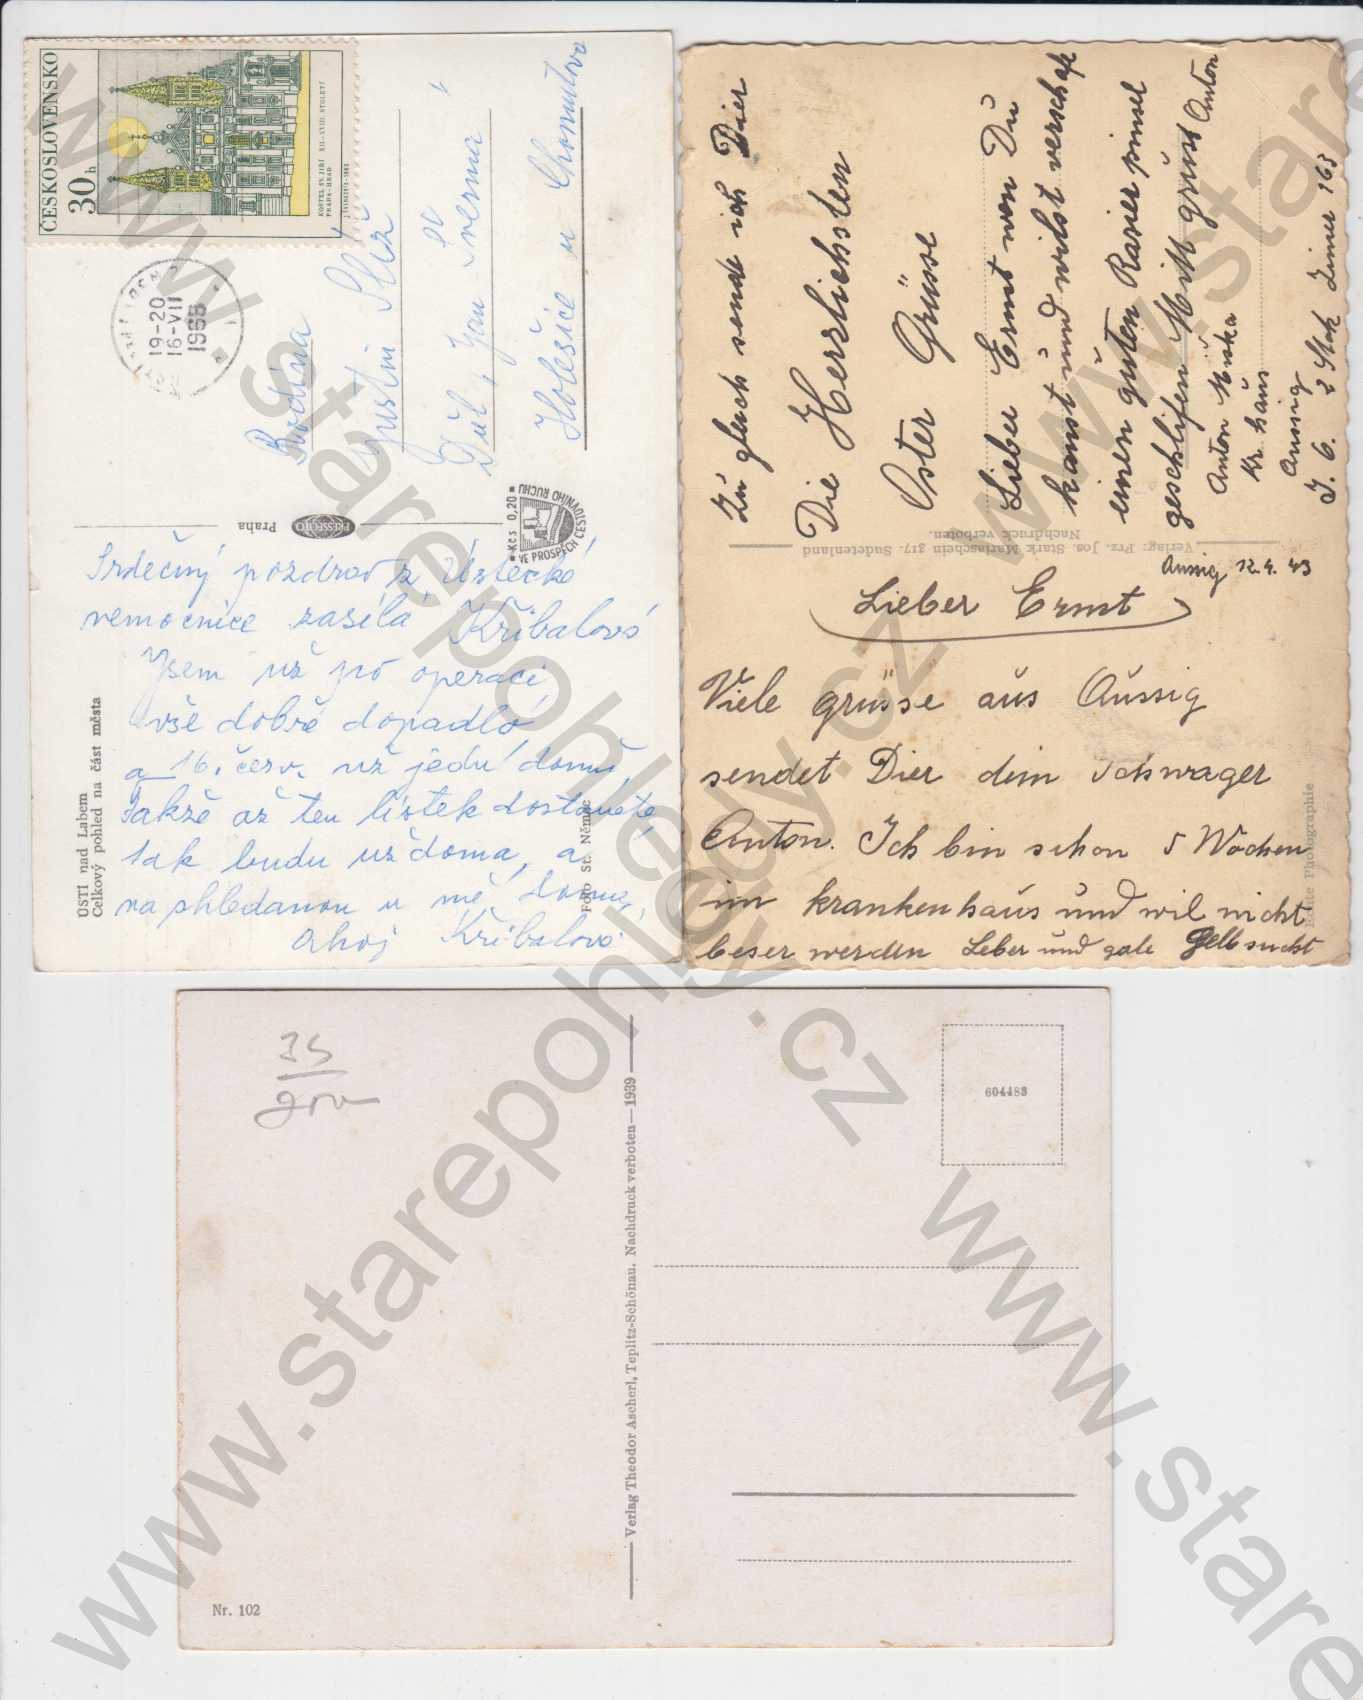 ČESKOSLOVENSKO
30 h
KOSTEL SV. JIŘÍ XII.-XVIII. STOLETÍ
PRAHA-HRAD
19-20
16-VII
1968
Rodina
Justin Slíž
Důl, Jan Šverma
Holešice u Chomutova
Praha
PRESSFOTO
Kčs 0,20
VE PROSPĚCH CESTOVNÍHO RUCHU
Srdečný pozdrav z Ústecké
nemocnice zasílá Křibalová
Jsem už po operaci,
vše dobře dopadlo,
a 16. červ. už jedu domů,
Takže až ten lístek dostanete,
tak budu už doma, a
na shledanou u mě, doma,
ahoj Křibalová
ÚSTÍ nad Labem
Celkový pohled na část města
Foto St. Němec
Zu gleich sende ich Dier
Die Herzlichsten
Oster Grüsse
Lieber Ernst wen Du
kanst und wilst verschafe
einen guten Rasier pinsel
geschlifen Mit gruss Anton
Anton
Kr. haus
Aussig
J. 6. 2 Stok Zimer 163
Verlag: Prz. Jos. Stark Mariaschein 317. Sudetenland
Nachdruck verboten.
Aussig 12.4.43
Lieber Ernst
Viele grüsse aus Aussig
sendet Dier dein Schwager
Anton. Ich bin schon 5 Wochen
im krankenhaus und wil nicht
beser werden Leber und gale Gelbsucht
Echte Photographie
35
604483
Verlag Theodor Ascherl, Teplitz-Schönau. Nachdruck verboten—1939
Nr. 102
www.starepohledy.cz
www.starepohledy.cz
www.stare
www.stare